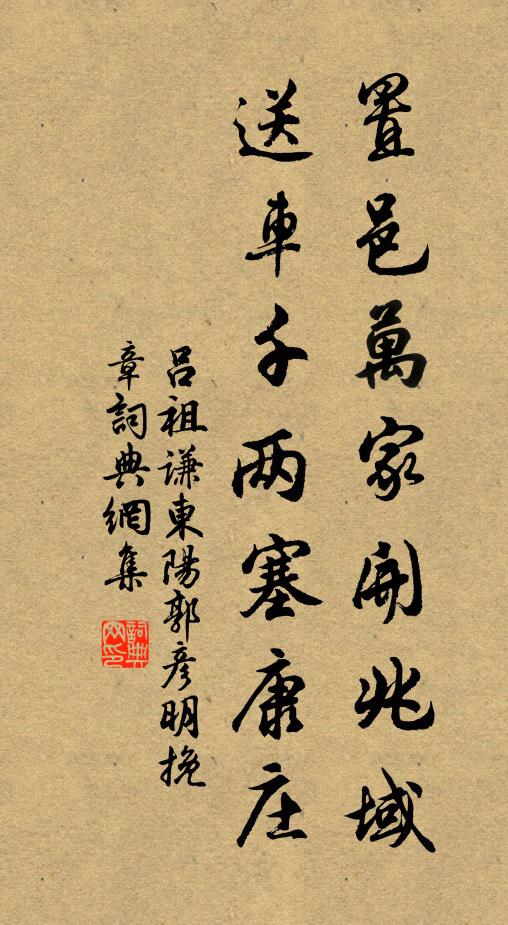 置邑萬家開兆域
送車千两塞康庄
吕祖谦東陽郭彦明挽
章詞典網集
詞典網印